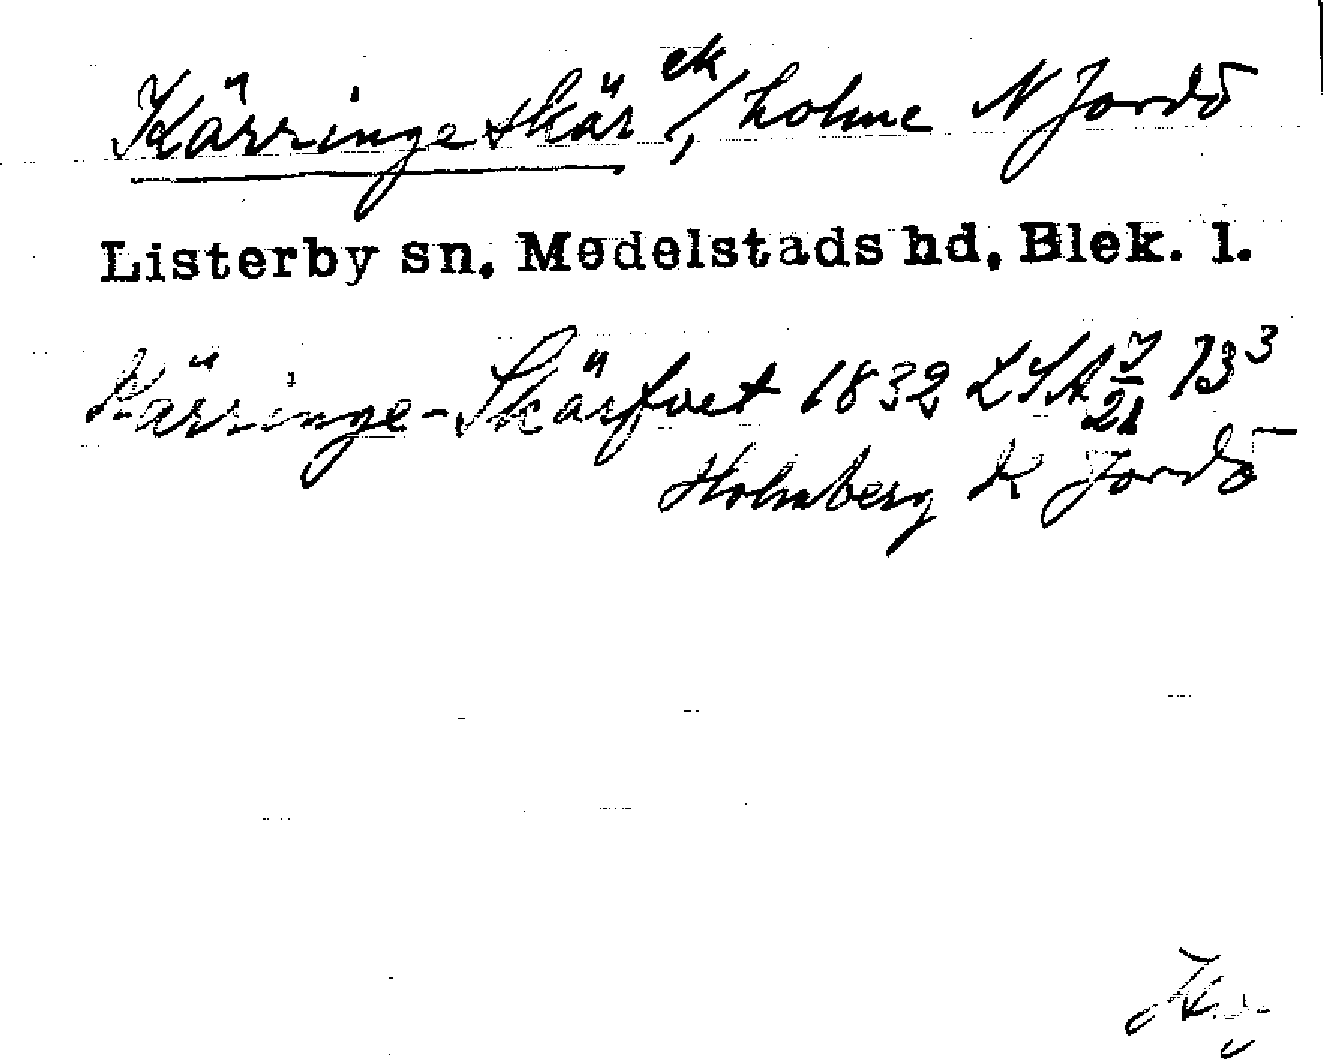 Kärringeskär, ek holme N Jordö
Listerby sn. Medelstads hd, Blek. l.
Kärringe-Skärfvet 1832 LSA J/21 73³
Holmberg K Jordö